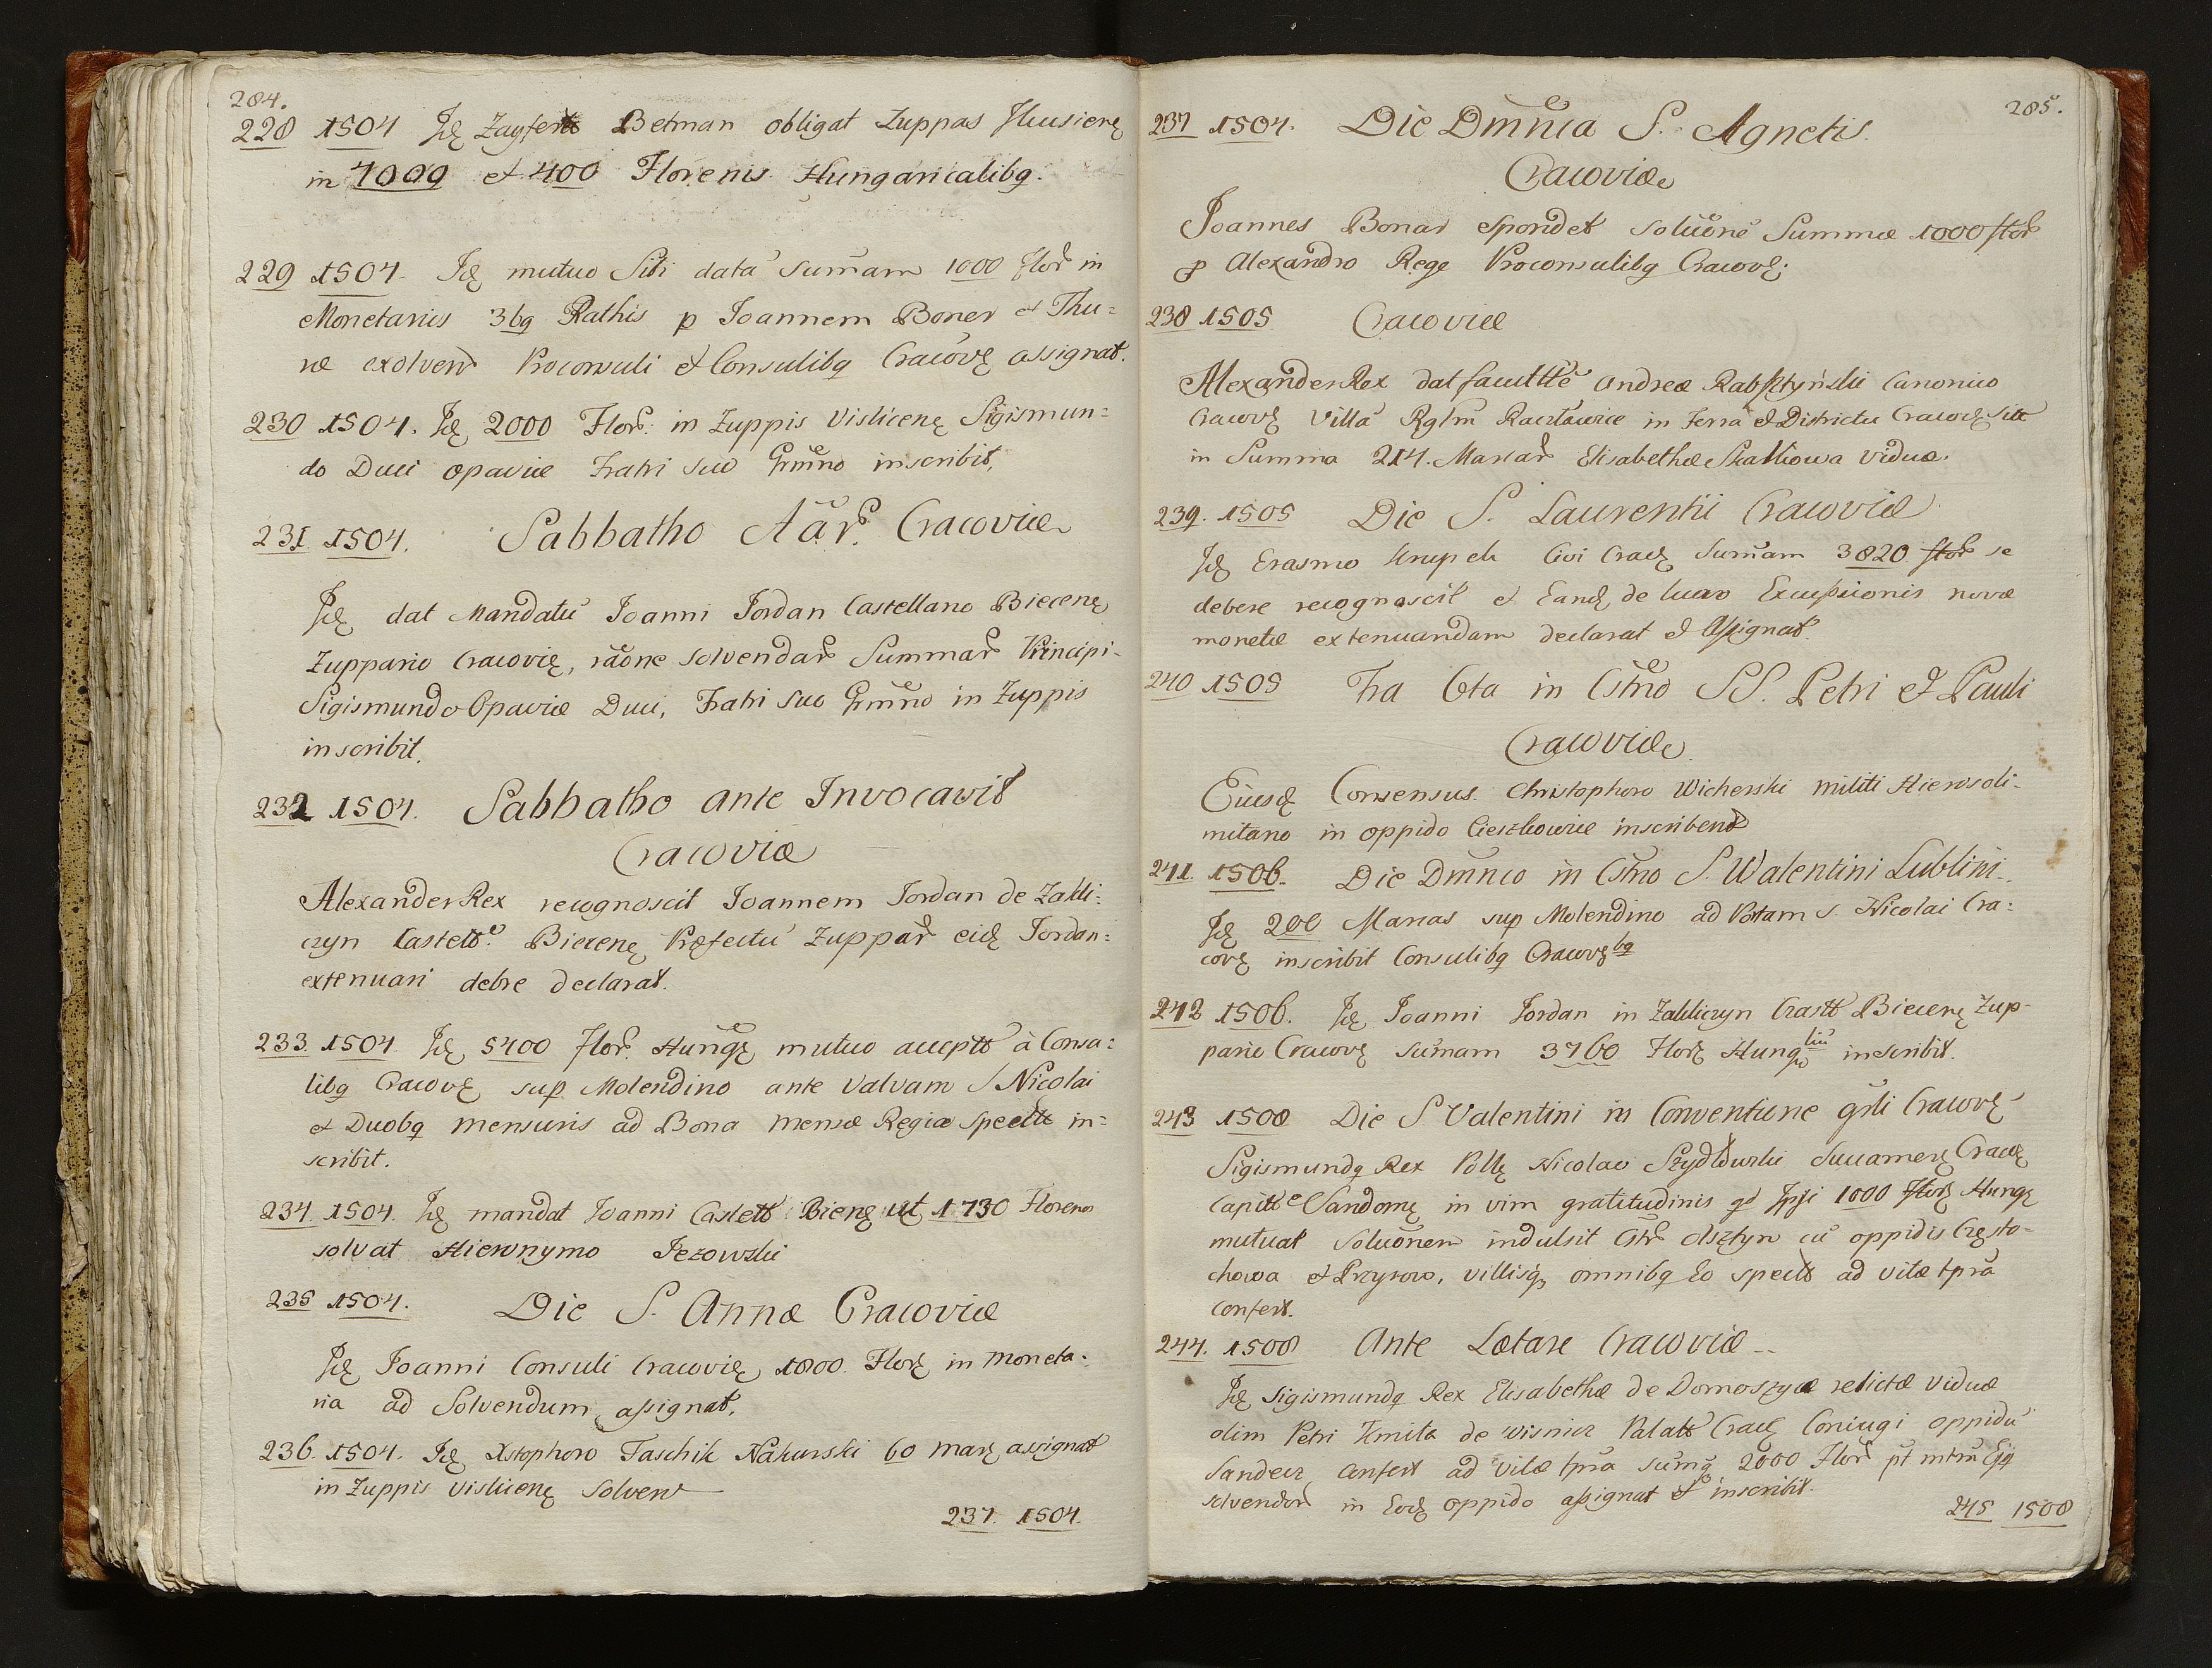 284.
228 1504 Jdę Zayfert Betman obligat Zuppas Ilkusienę
in 7000 et 400 Florenis Hungaricalibq.
229 1504. Jdę mutuo Sibi datā sum̄am 1000 flor in
Monetariis 3bq Rathis p Joannem Boner et Thu=
ne exolvend Proconsuli et Consulibq Cracovę assignat.
230 1504. Jdę 2000 Flor: in Zuppis Vislicenę Sigismun=
do Duci Opaviæ Fratri suo Grm̄no inscribit,
231 1504. Sabbatho Cracoviæ
Jdę dat Mandatū Joanni Jordan Castellano Biecenę
Zuppario Cracovię, rāone solvendar Summar Principi-
Sigismundo Opaviæ Duci, Fratri suo Grm̄no in Zuppis
inscribit.
232 1504. Sabbatho ante Invocavit
Cracoviæ
Alexander Rex recognoscit Joannem Jordan de Zakli=
czyn Castelt Biecenę Præfectū Zuppar eidę Jordan=
extenuari debre declarat.
233. 1504 Jdę 5400 flor. Hungę mutuo accept à Consu=
libq Cracovę sup Molendino ante Valvam S Nicolai
et Duobq mensuris ad Bona mensæ Regiæ spectt in=
scribit.
234. 1504. Jdę mandat Joanni Castelt Bienę ut 1730 Florenos
solvat Hieronymo Jezowski
235 1504. Die S. Annæ Cracoviæ
Jdę Joanni Consuli Cracovię 1000. Florę in moneta-
ria ad Solvendum assignat.
236. 1504. Jdę Xstophoro Taschik Nakurski 60 marę assignat
in Zuppis vislicenę solvend
237. 1504.
285.
237 1504. Die Dmn̄ca S. Agnetis.
Cracoviæ
Joannes Bonar spondet soluōne Summæ 1000 flor
p Alexandro Rege Proconsulibq Cracovę.
238 1505 Cracoviæ
Alexander Rex dat facultte Andreæ Rabsztyński Canonico
Cracovę Villā Rglm Raczławice in Terra et Districtu Cracovę sitt
in Summa 214. Marcar Elisabethæ Skalkowa viduæ.
239. 1505 Die S. Laurentii Cracoviæ
Jdę Erasmo Krupek Civi Cracę sum̄am 3820 flor se
debere recognoscit et Eandę de lucro Excussionis novæ
monetæ extenuandam declarat et assignat.
240 1505 Fra 6ta in Cstno SS. Petri et Pauli
Cracoviæ
Eiusdę Consensus Christophoro Wicherski militi Hierosoli-
mitano in oppido Cieszkowice inscribend
241. 1506. Die Dmn̄co in Cstno S. Walentini Lublini.
Jdę 200 Marcas sup Molendino ad Portam S. Nicolai Cra=
covę inscribit Consulibq Cracovę bq
242 1506. Jdę Joanni Jordan in Zakliczyn Castt Biecenę Zup-
pario Cracovę sum̄am 3760 Florę Hung inscribit.
243 1508 Die S Valentini in Conventione gnli Cracovę
Sigismundq Rex Pollę Nicolao Szydłowski Succamerę Cracę
Capitt Sandomę in vim gratitudinis qd Ipsi 1000 florę Hungę
mutuat soluōnem indulsit Cstr Olsztyn cū oppidis Często=
chowa et Przyrow, villisq omnibq Eo spectt ad vitæ tpra
Confert.
244. 1508 Ante Lætare Cracoviæ
Jdę Sigismundq Rex Elisabethæ de Domoszyce relictæ viduæ
olim Petri Kmita de Wisnicz Palatt Cracę Coniugi oppidū
Sandecz confert ad vitæ tpra sum̄ą 2000 Flor pt mtm Ejq
solvendor in Eodę oppido assignat et inscribit.
245 1508